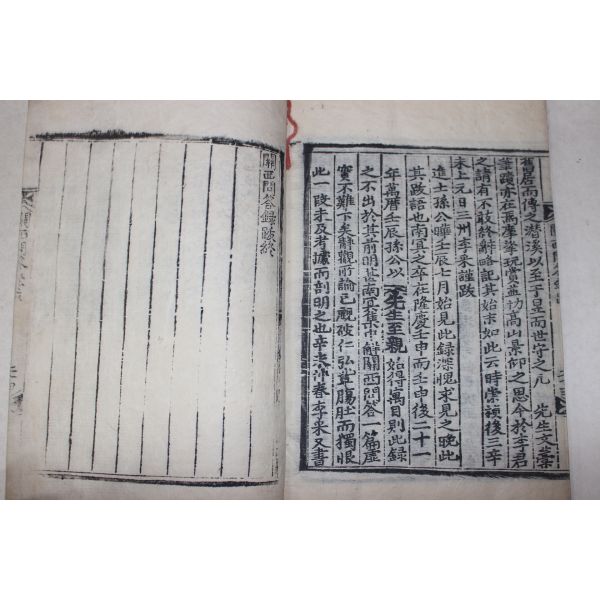 舊居而傳之潜溪以至于昰而世守之凡 先生文藁
筆蹟亦在焉摩挲玩賞益切高山景仰之思今於李君
之請有不敢終辭略記其始末如此云時崇禎後三辛
未上元日三州李采謹跋
進士孫公曄壬辰七月始見此録深愧求見之晩此
其跋語也南冥之卒在隆慶壬申而壬申後二十一
年萬曆壬辰孫公以 先生至親 始得寓目則此録
之不出於其前明甚南冥集中解關西問答一篇虛
實不難下矣辭觀所論已覰破仁弘輩膓肚而獨眼
此一段未及考據而剖明之也辛未沛春李采又書
關西問答録跋終